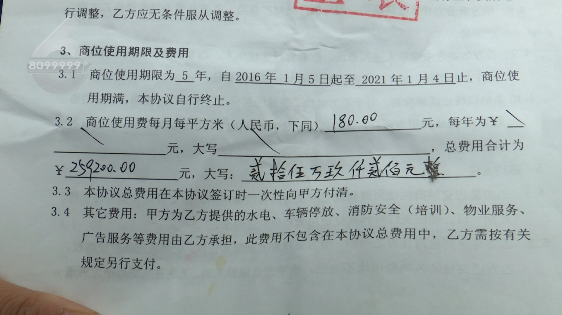 行调整，乙方应无条件服从调整。
8099999
3、商位使用期限及费用
3.1 商位使用期限为 5 年，自 2016 年 1 月 5 日起至 2021 年 1 月 4 日止，商位使
用期满，本协议自行终止。
3.2 商位使用费每月每平方米（人民币，下同） 180.00 元，每年为￥
元，大写 ，总费用合计为
￥ 259200.00 元，大写： 贰拾伍万玖仟贰佰元整 。
3.3 本协议总费用在本协议签订时一次性向甲方付清。
3.4 其它费用：甲方为乙方提供的水电、车辆停放、消防安全（培训）、物业服务、
广告服务等费用由乙方承担，此费用不包含在本协议总费用中，乙方需按有关
规定另行支付。